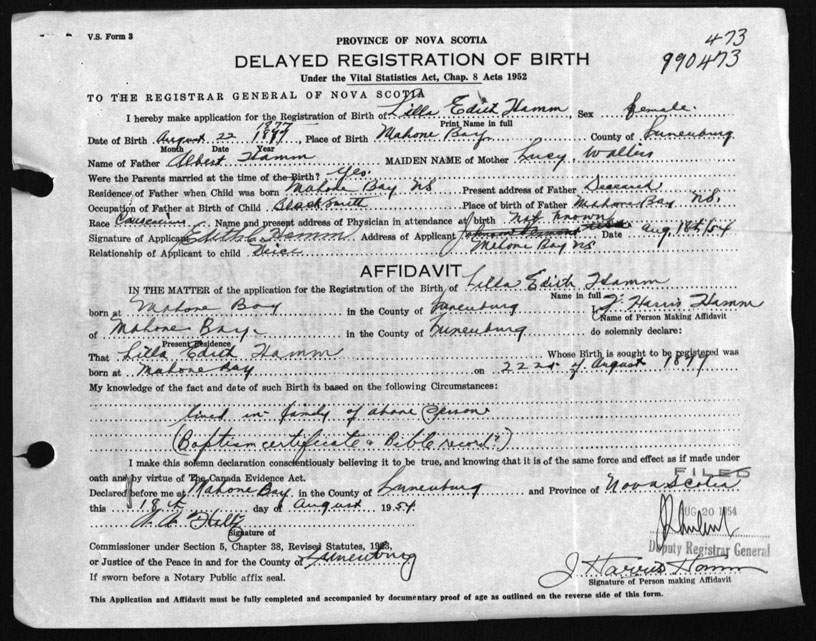 V.S. Form 3
PROVINCE OF NOVA SCOTIA
473
DELAYED REGISTRATION OF BIRTH
990473
Under the Vital Statistics Act, Chap. 8 Acts 1952
TO THE REGISTRAR GENERAL OF NOVA SCOTIA
I hereby make application for the Registration of Birth of Lilla Edith Hamm, Sex female.
Print Name in full
Date of Birth August 22 1899, Place of Birth Mahone Bay County of Lunenburg
Month Date Year
Name of Father Albert Hamm MAIDEN NAME of Mother Lucy Walters
Were the Parents married at the time of the Birth? Yes.
Residence of Father when Child was born Mahone Bay NS Present address of Father Deceased
Occupation of Father at Birth of Child Blacksmith Place of birth of Father Mahone Bay NS.
Race Name and present address of Physician in attendance at birth Not Known
Signature of Applicant Hamm Address of Applicant Date Aug 18th/54
Mahone Bay NS
Relationship of Applicant to child
AFFIDAVIT
IN THE MATTER of the application for the Registration of the Birth of Lilla Edith Hamm
Name in full
born at Mahone Bay in the County of Lunenburg I, J. Harris Hamm
Name of Person Making Affidavit
of Mahone Bay in the County of Lunenburg do solemnly declare:
Present Residence
That Lilla Edith Hamm Whose Birth is sought to be registered was
born at Mahone Bay on 22nd of August 1899
My knowledge of the fact and date of such Birth is based on the following Circumstances:
lived in family of above person
(Baptism certificate & Bible record)
I make this solemn declaration conscientiously believing it to be true, and knowing that it is of the same force and effect as if made under
oath and by virtue of The Canada Evidence Act.
FILED
Declared before me at Mahone Bay in the County of Lunenburg and Province of Nova Scotia
this 18th day of August 1954
AUG 20 1954
Signature of
Commissioner under Section 5, Chapter 38, Revised Statutes, 1923,
Deputy Registrar General
or Justice of the Peace in and for the County of Lunenburg
J Harris Hamm
Signature of Person making Affidavit
If sworn before a Notary Public affix seal.
This Application and Affidavit must be fully completed and accompanied by documentary proof of age as outlined on the reverse side of this form.